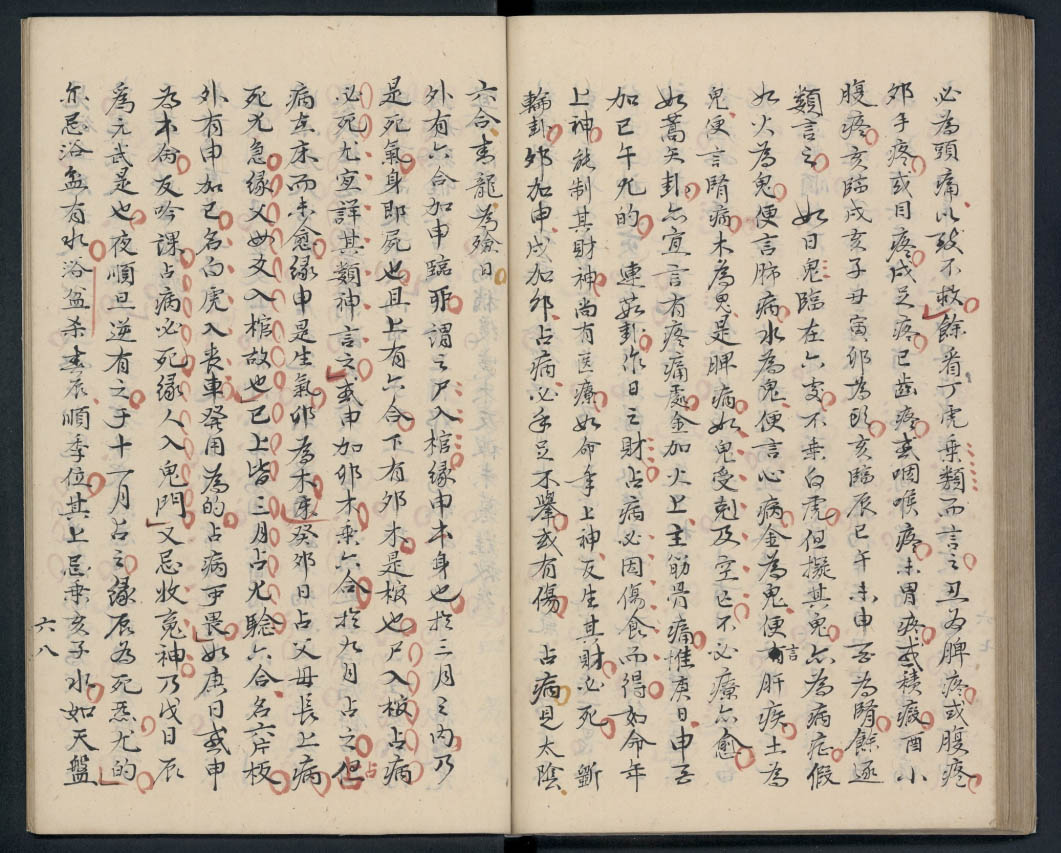 必為頭痛以致不救餘看丁虎乗類而言之丑為脾疼或腹疼
卯手疼或目疼戌足疼巳歯疼或咽喉疼未胃疼或積瘕酉小
腹疼亥臨戌亥子丑寅卯為頭亥臨辰巳午未申酉為腎餘逐
類言之如日鬼臨在六支不乗白虎但擬其鬼亦為病症假
如火為鬼便言肺病水為鬼便言心病金為鬼便言肝疾土為
鬼便言腎病木為鬼是脾病如鬼受剋及空亡不必療亦愈
如蒿矢卦亦宜言有疼痛處金加火上主筋骨痛惟庚日申酉
加巳午尤的連茹卦作日之財占病必因傷食而得如命年
上神能制其財神尚有医療如命年上神反生其財必死斷
輪卦卯加申戌加卯占病必手足不舉或有傷占病見太陰
六合青龍為殮日
外有六合加申臨卯謂之尸入棺縁申本身也於三月之内乃
是死氣身即屍也且上有六合下有卯木是板也尸入板占病
必死尤宜詳其類神言之或申加卯木乗六合於九月占之但占
病点床而未愈縁申是生氣卯為木床癸卯日占父母長上病
死尤急縁父母爻入棺故也巳上皆三月占尤驗六合名六片板
外有申加巳名白虎入喪車發用為的占病可畏如庚日或申
為本命反吟課占病必死縁人入鬼門又忌收寃神乃戊日辰
為元武是也夜順旦逆有之于十一月占之縁辰為死炁尤的
尓忌浴盆有水浴盆杀春辰順季位其上忌乗亥子水如天盤
六八